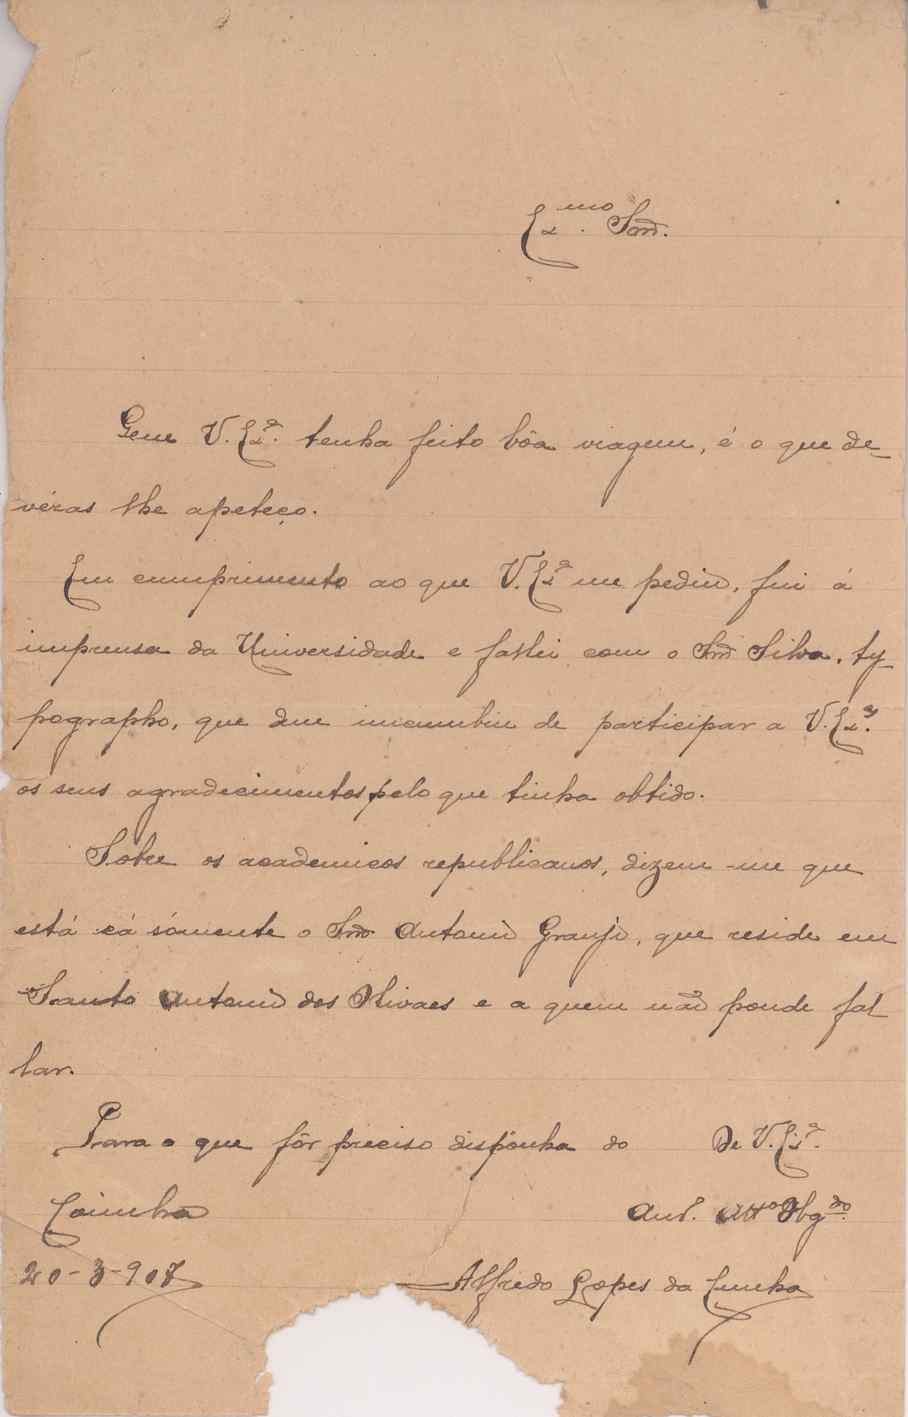 Ex.mo Snr.
Que V. Ex.a tenha feito bôa viagem, é o que de-
véras lhe apeteço.
Em cumprimento ao que V. Ex.a me pediu, fui á
imprensa da Universidade e fallei com o Snr Silva, ty-
pographo, que me incumbiu de participar a V. Ex.a
os seus agradecimentos pelo que tinha obtido.
Sobre os academicos republicanos, dizem-me que
está cá sómente o Snr Antonio Granjo, que reside em
Santo Antonio dos Olivaes e a quem não poude fal-
lar.
Para o que fôr preciso disponha do De V. Ex.a
Coimbra Am.o Att.o Obg.do
20-3-907 Alfredo Lopes da Cunha